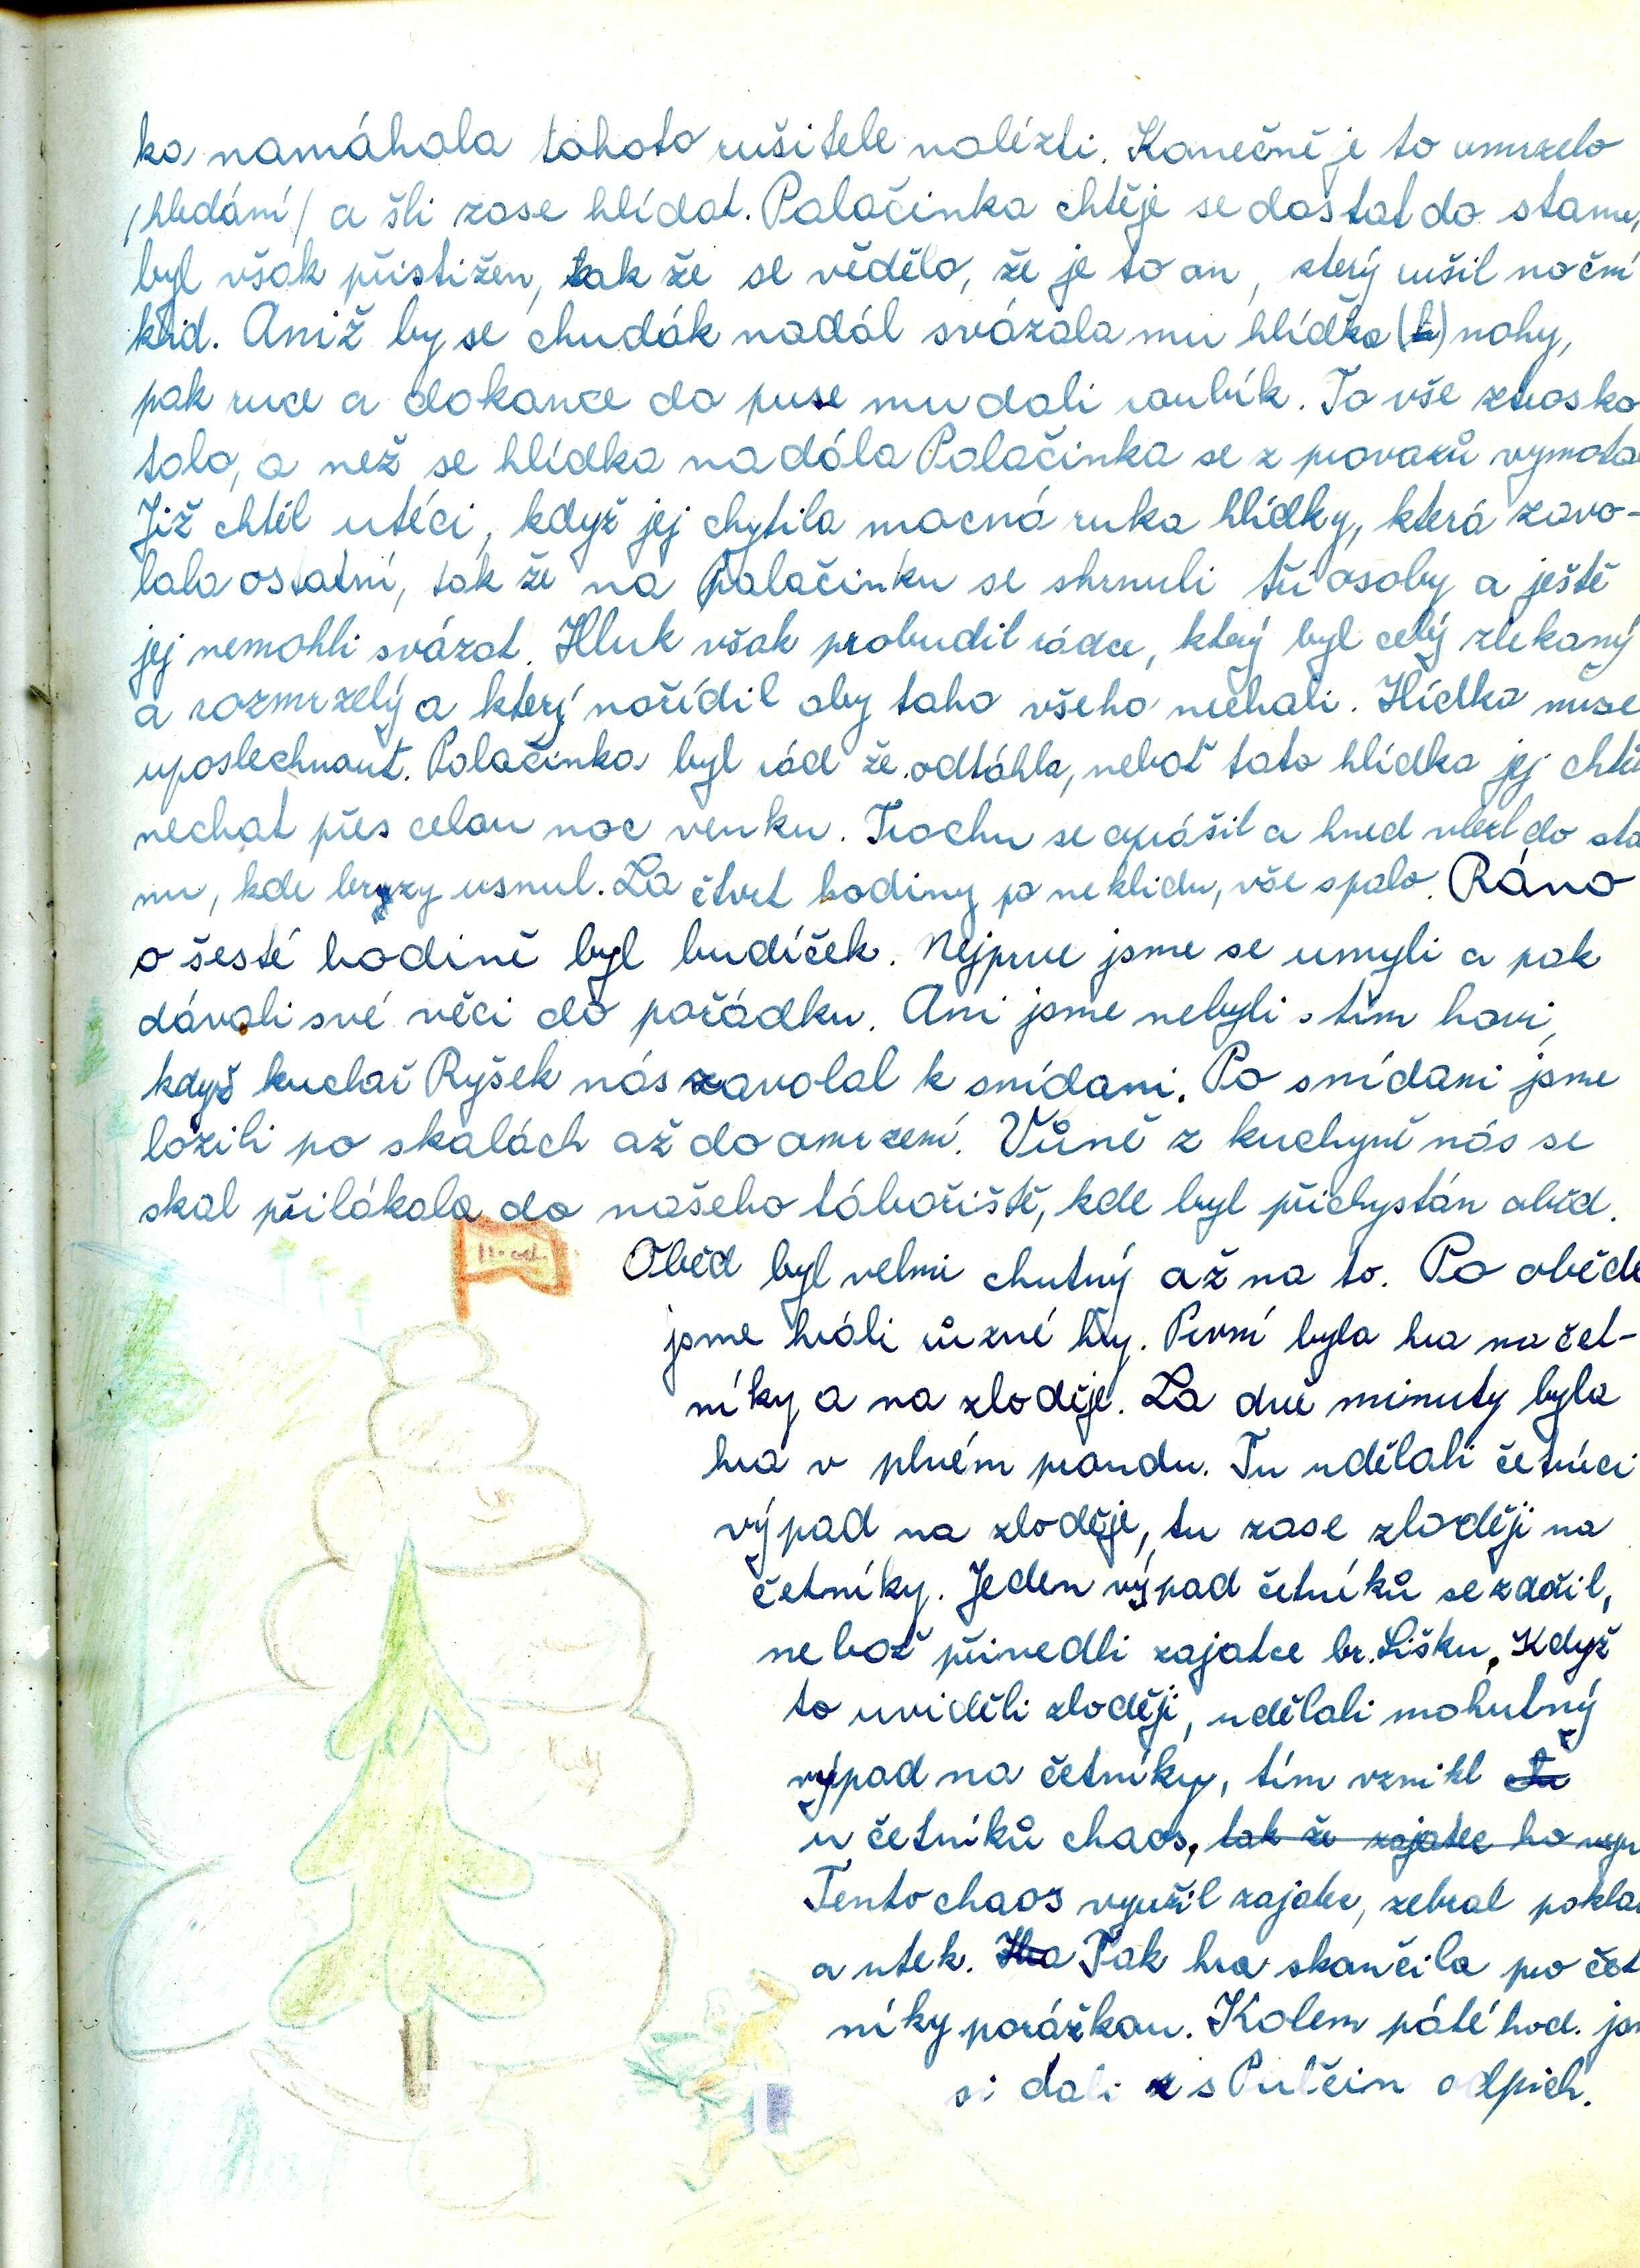 ka namáhala tohoto rušitele nalézti. Konečně je to omrzelo
/hledání/ a šli zase hlídat. Palačinka chtěje se dostat do stanu,
byl však přistižen, tak že se vědělo, že je to on, který rušil noční
klid. Aniž by se chudák nadál svázala mu hlídka (h) nohy,
pak ruce a dokonce do puse mu dali roubík. To vše ztrosko
talo, a než se hlídka nadála Palačinka se z provazů vymotal
Již chtěl utéci, když jej chytila mocná ruka hlídky, která zavo-
lala ostatní, tak že na Palačinku se shrnuli tři osoby a ještě
jej nemohli svázat. Hluk však probudil rádce, který byl celý zlekaný
a rozmrzelý a který nařídil aby toho všeho nechali. Hlídka muse
uposlechnout. Palačinka byl rád že odtáhla, neboť tato hlídka jej chtě
nechat přes celou noc venku. Trochu se oprášil a hned vlezl do sta
nu, kde brzy usnul. Za čtvrt hodiny po neklidu, vše spalo. Ráno
o šesté hodině byl budíček. Nejprve jsme se umyli a pak
dávali své věci do pořádku. Ani jsme nebyli s tím hovi,
když kuchař Ryšek nás zavolal k snídani. Po snídani jsme
lozili po skalách až do omrzení. Vůně z kuchyně nás se
skal přilákala do našeho tábořiště, kde byl přichystán oběd.
Oběd byl velmi chutný až na to. Po obědě
jsme hráli různé hry. První byla hra na čet-
níky a na zloděje. Za dvě minuty byla
hra v plném proudu. Tu udělali četníci
výpad na zloděje, tu zase zloději na
četníky. Jeden výpad četníků se zdařil,
neboť přivedli zajatce br. Lišku. Když
to uviděli zloději, udělali mohutný
výpad na četníky, tím vznikl
u četníků chaos, tak že zajatec ho
Tento chaos využil zajatec, zebral poklad
a utek. Hra Tak hra skončila pro čet
níky porážkou. Kolem páté hod. jsm
si dali s Pulčin odpich.